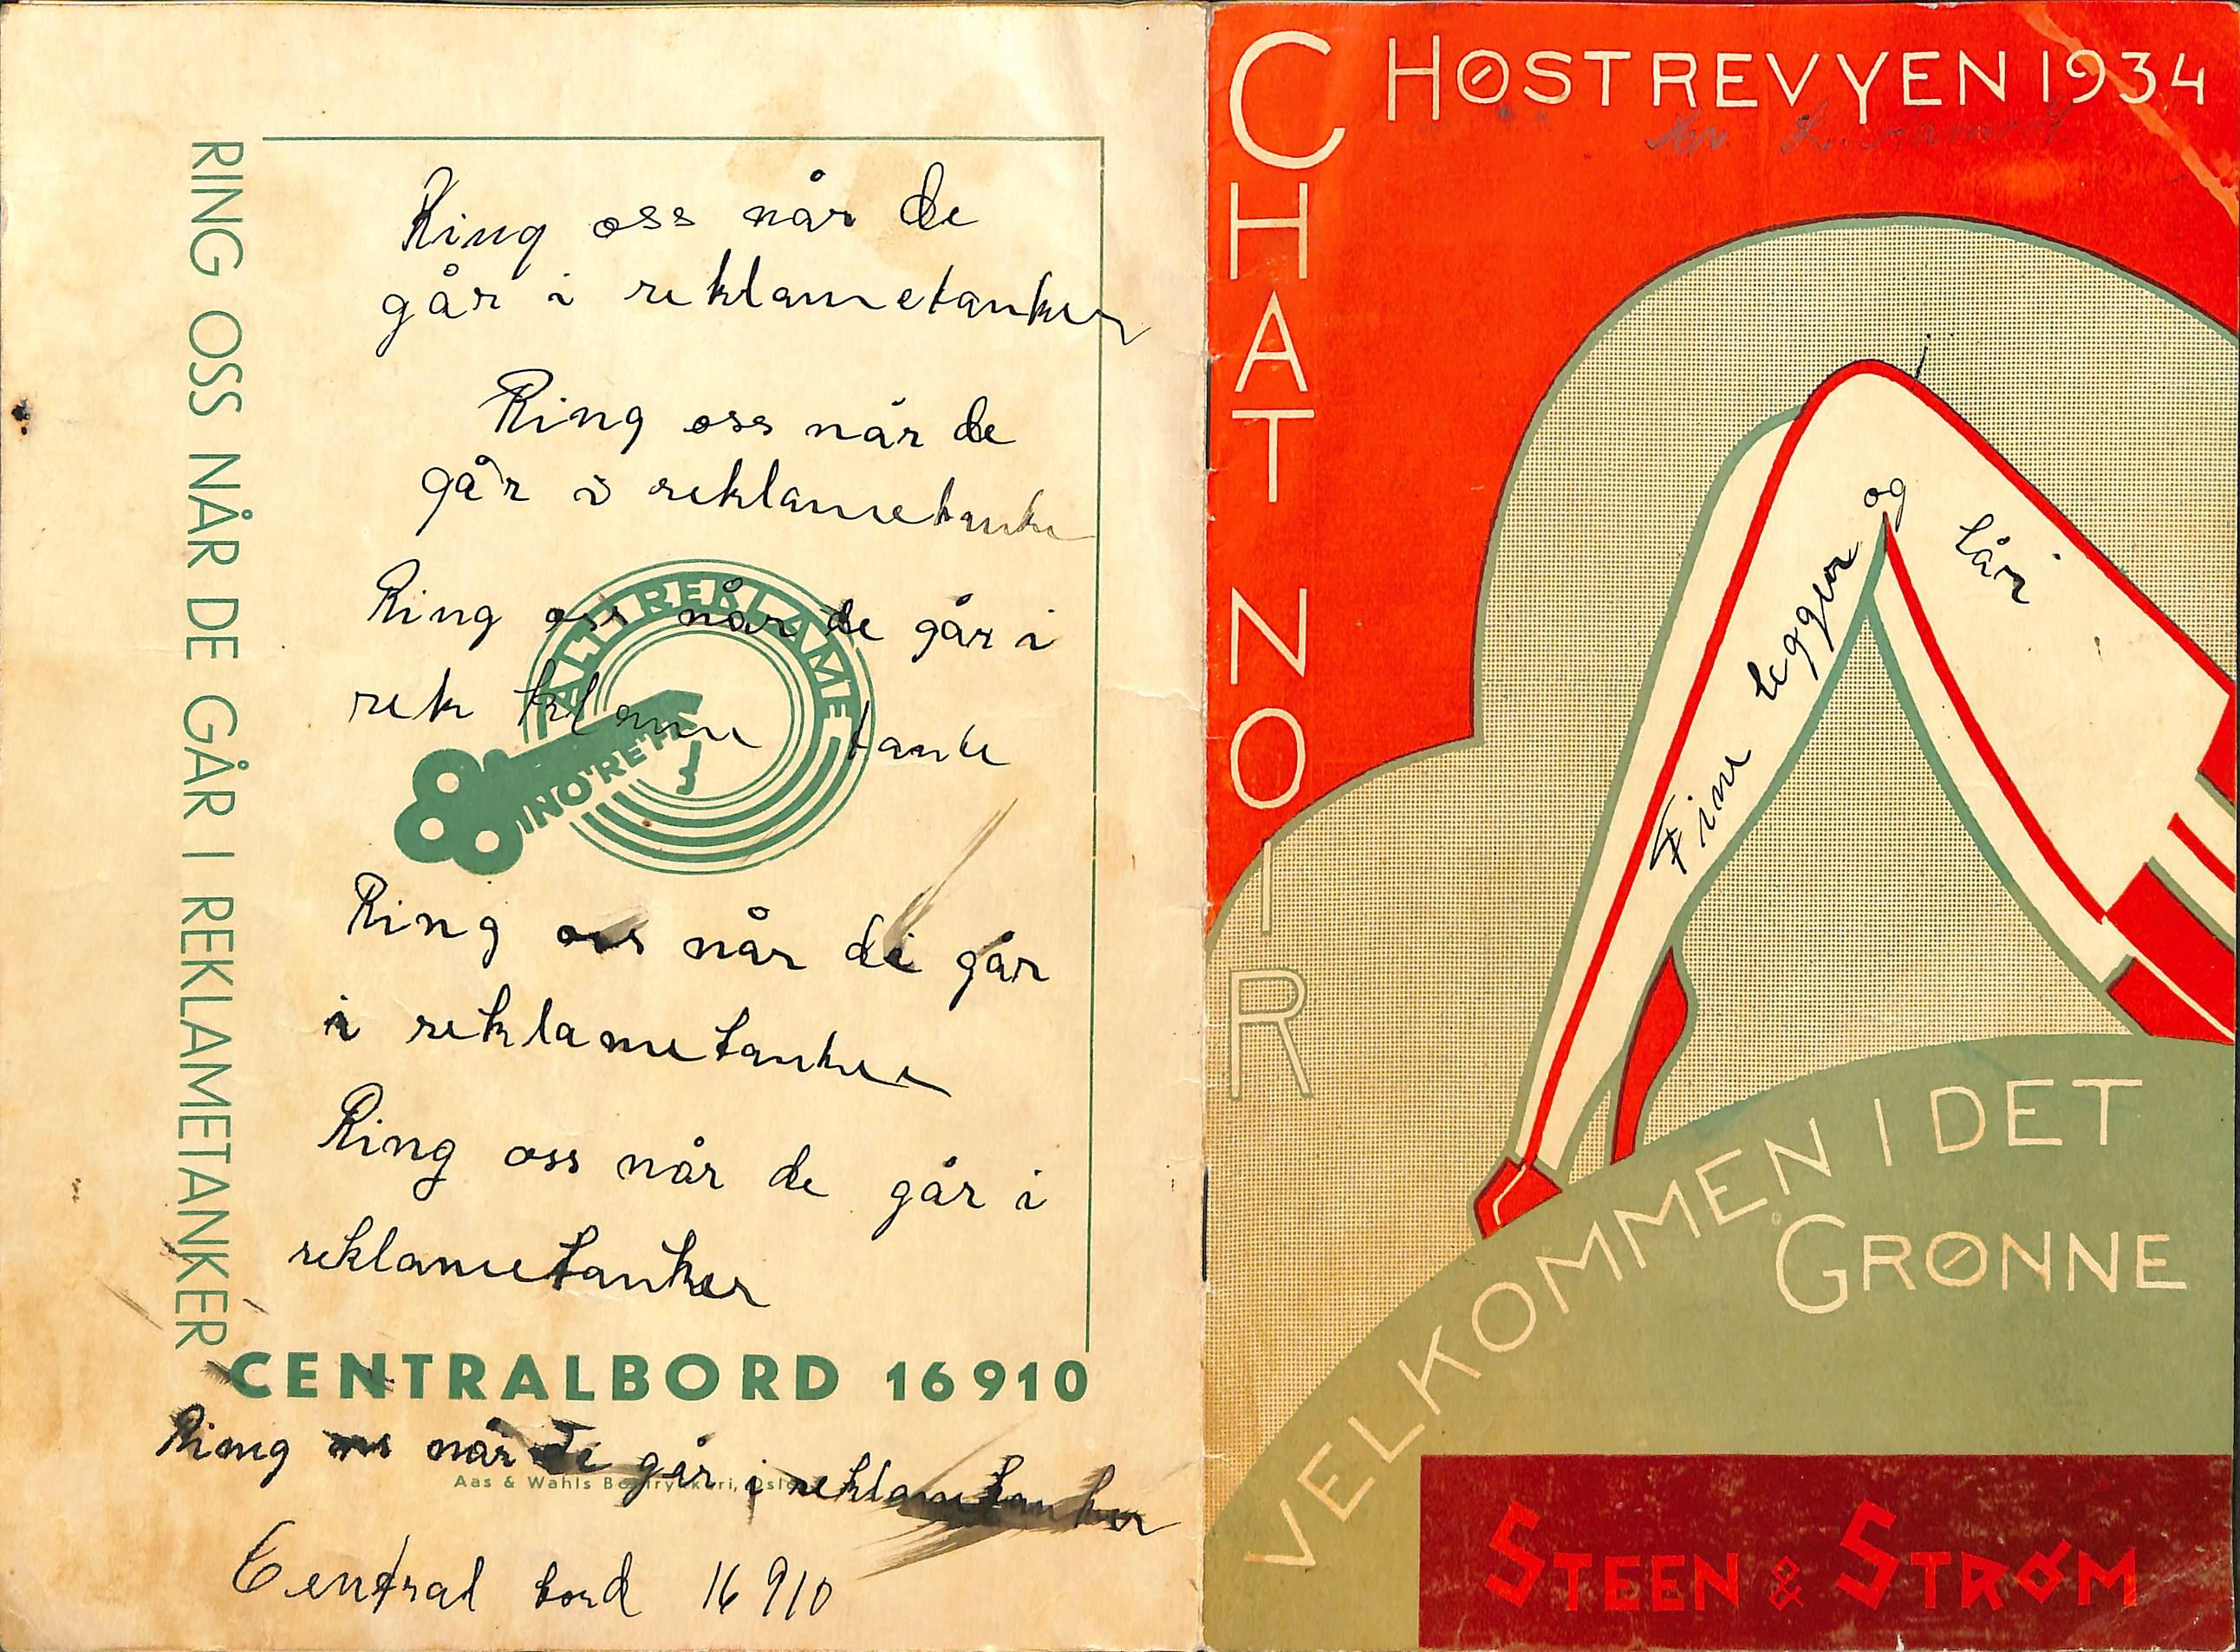 RING OSS NÅR DE GÅR I REKLAMETANKER
Ring oss når de
går i reklametanker
Ring oss når de
går i reklametanke
ALT I REKLAME
Ring oss når de går i
rek klame tanke
INO'REK
Ring oss når de går
i reklametanker
Ring oss når de går i
reklametanker
CENTRALBORD 16910
Ring oss når de går i reklametanker
Aas & Wahls Boktrykkeri, Oslo
Central bord 16910
CHAT NOIR
HØSTREVYEN 1934
Fine legger og lår
VELKOMMEN I DET
GRØNNE
STEEN & STRØM